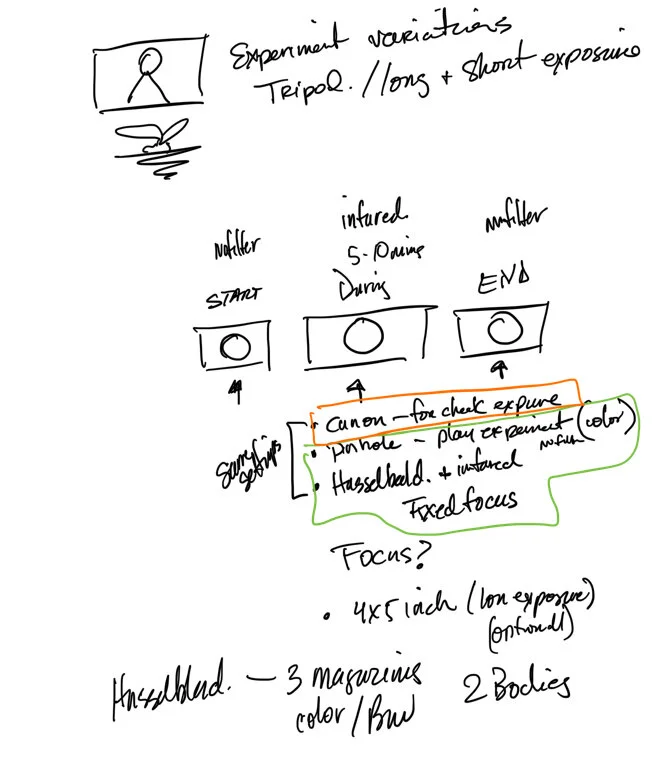 Experiment variations
Tripod. // long + short exposure
Nofilter
START
infared
5-10 mins
During
nofilter
END
Same setups
• Canon – for check expure
• pinhole – play experiment (color)
nofilter
• Hasselbald. + infared
Fixed focus
Focus?
• 4x5 inch (lon exposure)
(optionall)
Hasselblad. — 3 magazines 2 Bodies
color / BnW